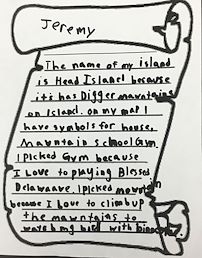 Jeremy
The name of my island
is Head Island because
it's has Digger mawntains
on Island. on my map I
have symbols for house,
Mawntain school Gym.
I picked Gym because
I Love to playing Blessed
Delawaave. I picked mowntain
because I Love to climb up
the mawntains to
my with